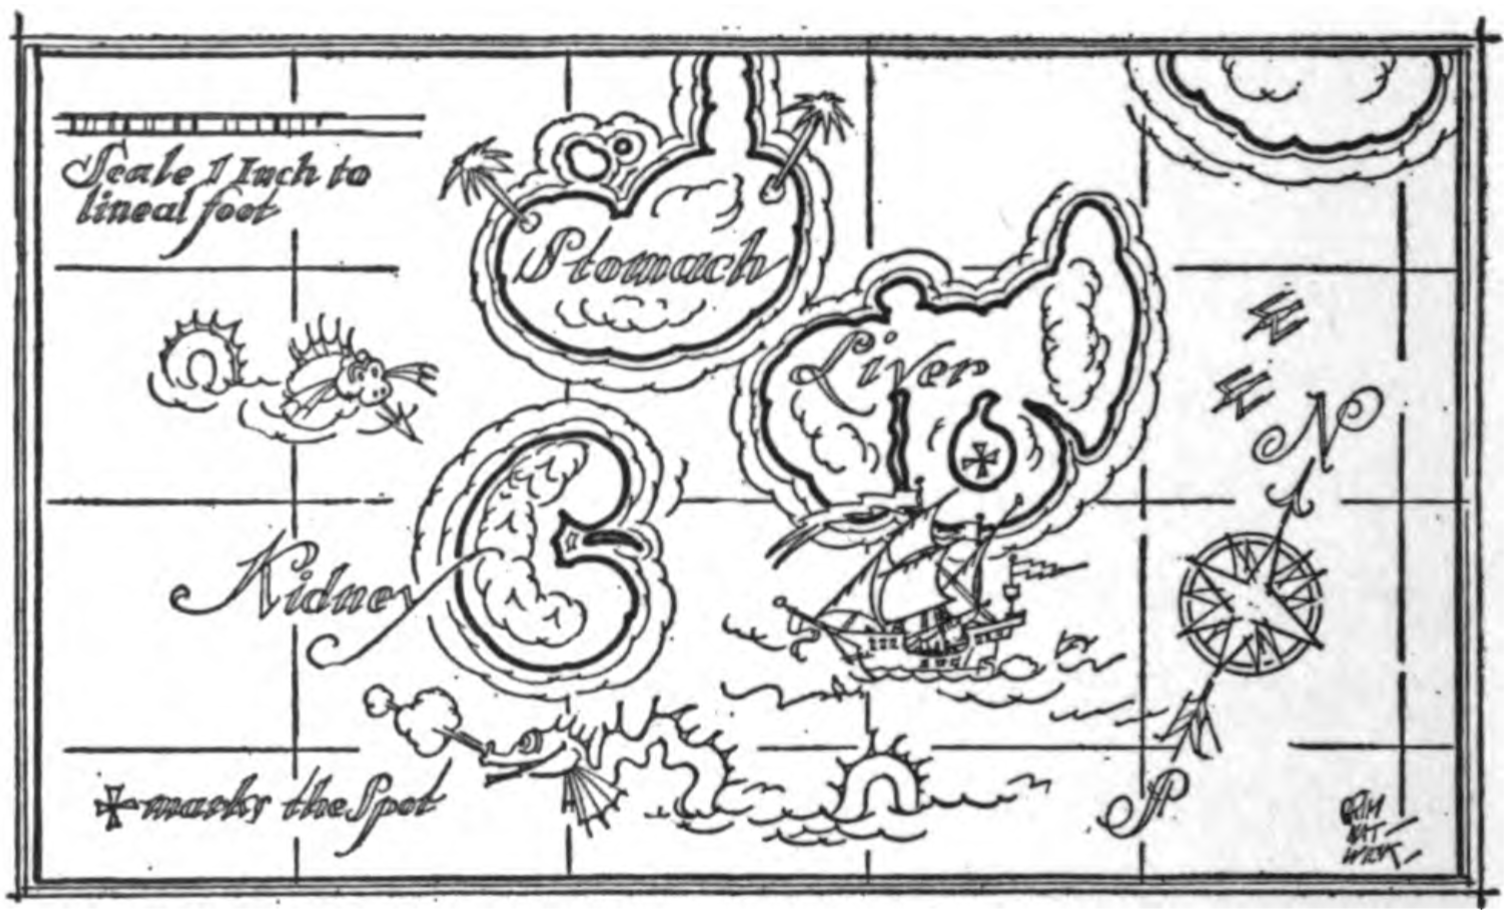 Scale 1 Inch to
lineal foot
Stomach
Liver
N
Kidney
marks the Spot
S
GRIM
NAT
WICK